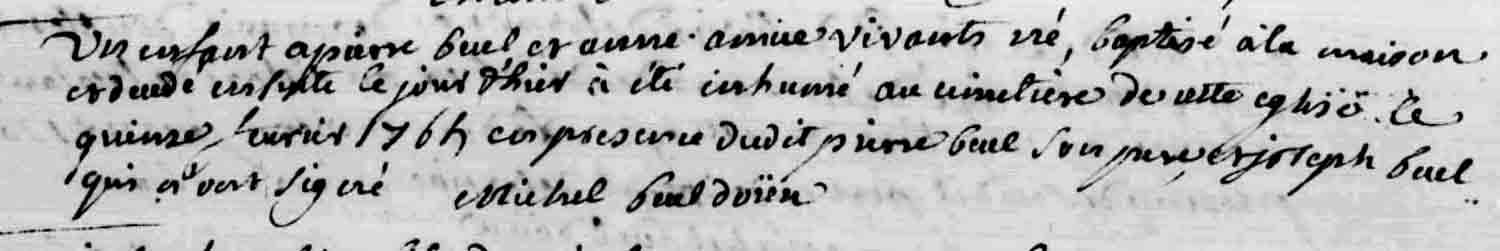 Un enfant a pierre buel et anne amice vivants né, baptisé à la maison
et decedé ensuite le jour d'hier à été inhumé au cimetiere de cette eglise le
quinze fevrier 1764 en presence dudit pierre buel son pere, et joseph buel
qui n'ont signé Michel buel doïen